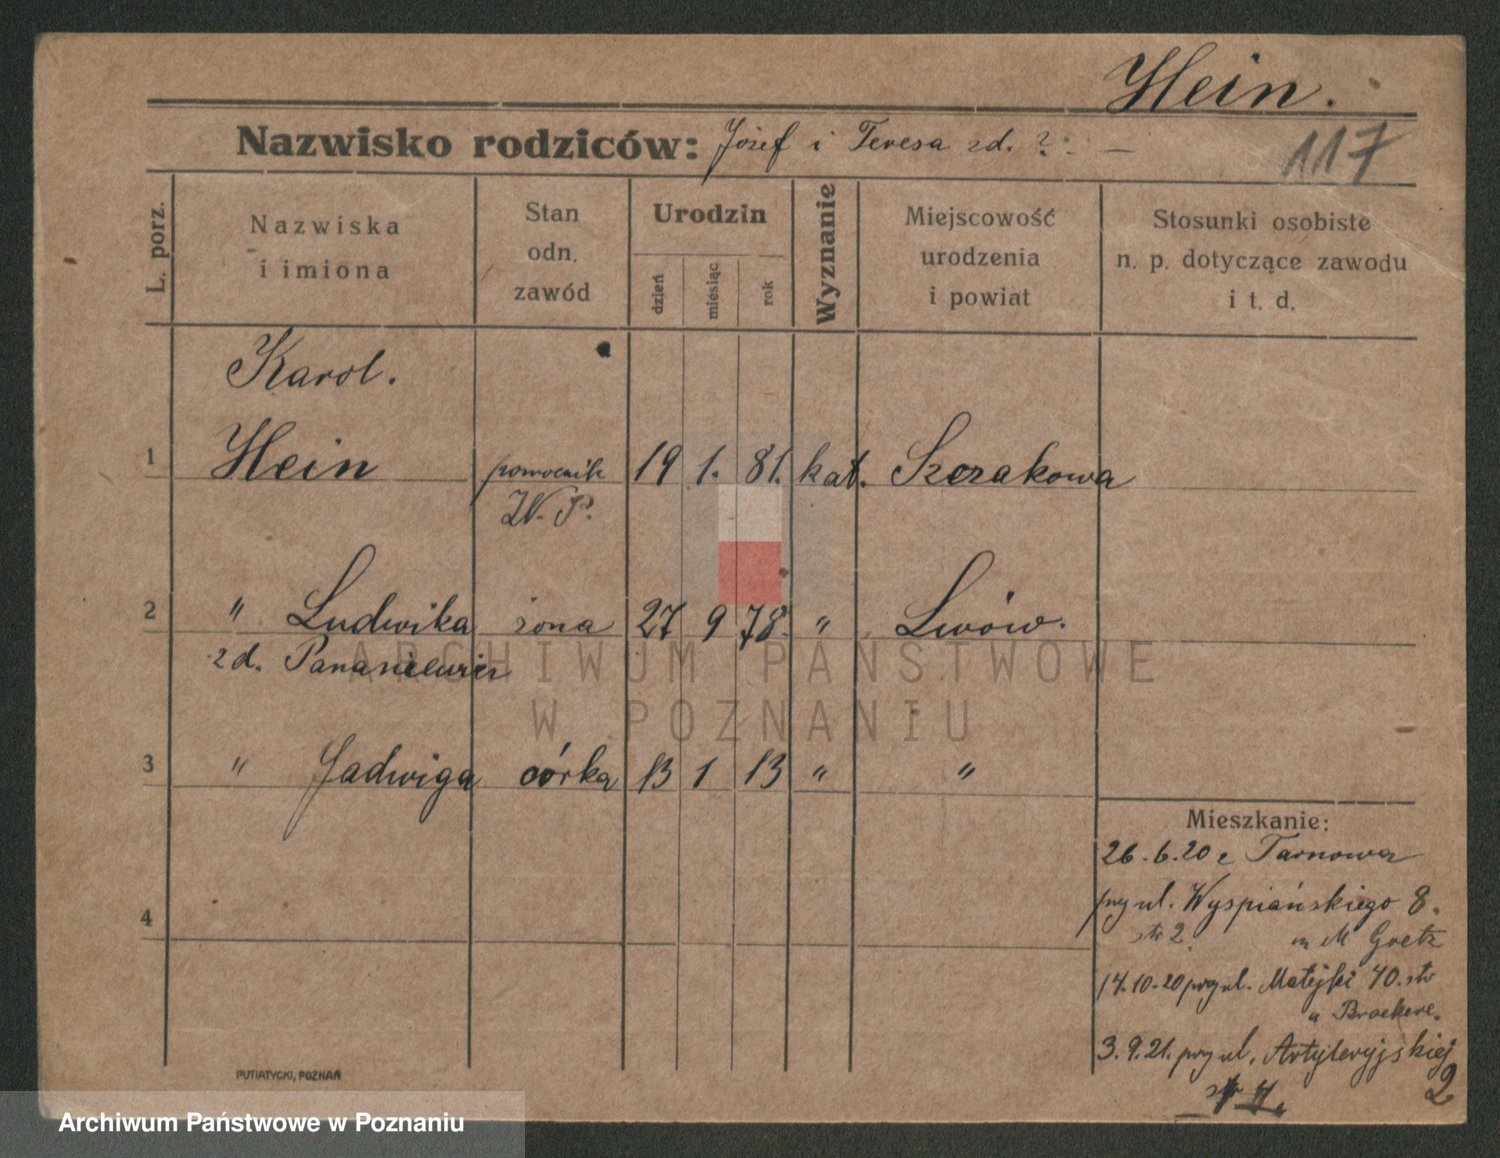 Hein.
Nazwisko rodziców: Józef i Teresa zd. ? . —
117
L. porz.
Nazwiska
i imiona
Stan
odn.
zawód
Urodzin
dzień
miesiąc
rok
Wyznanie
Miejscowość
urodzenia
i powiat
Stosunki osobiste
n. p. dotyczące zawodu
i t. d.
Karol.
1 Hein pomocnik 19 1. 81. kat. Szczakowa
W. P.
2 " Ludwika żona 27 9 78. " Lwów.
zd.
3 " Jadwiga córka 13 1 13 " "
4
Mieszkanie:
26.6.20 z Tarnowa
przy ul. Wyspiańskiego 8.
str 2. m M Goetz
17.10.20 przy ul. Matejki 70. str
"
3.9.21. przy ul. Artyleryjskiej
2
PUTIATYCKI, POZNAŃ
ARCHIWUM PAŃSTWOWE
W POZNANIU
Archiwum Państwowe w Poznaniu